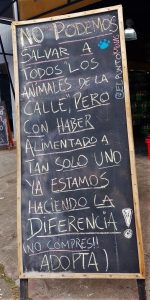 NO PODEMOS
SALVAR A
TODOS LOS
ANIMALES DE LA
CALLE, PERO
CON HABER
ALIMENTADO A
TAN SOLO UNO
YA ESTAMOS
HACIENDO LA
DIFERENCIA!
¡NO COMPRES!!
ADOPTA)